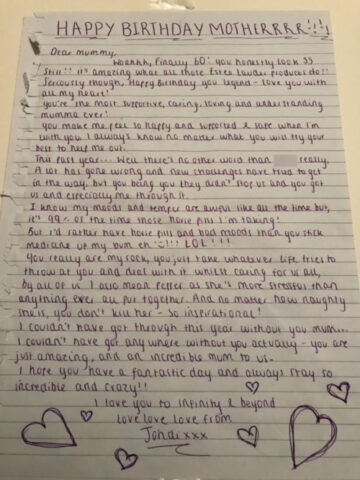 HAPPY BIRTHDAY MOTHERRRR!!!
Dear mummy,
Woahhh, finally 60! you honestly look 35
still!! it's amazing what all those Estee Lauder products do!!
Seriously though, Happy Birthday you legend - love you with
all my heart!
You're the most supportive, caring, loving and understanding
mumma ever!
You make me feel so happy and supported & safe when I'm
with you. I always know no matter what you will try your
best to help me out.
This past year... Well there's no other word than really.
A lot has gone wrong and new challenges have tried to get
in the way, but you being you they didn't stop us and you got
us and especially me through it.
I know my moods and temper are awful like all the time but,
it's 99% of the time those horse pills I'm taking!
But i'd rather have horse pills and bad moods than you stick
medicine up my bum eh!!! LOL!!!
You really are my rock, you just take whatever life tries to
throw at you and deal with it whilst caring for us all,
by all of us I also mean Pepper as she's more stressful than
anything ever all put together. And no matter how naughty
she is, you don't kill her - so inspirational!
I couldn't have got through this year without you mum...
I couldn't have got any where without you actually - you are
just amazing, and an incredible mum to us.
I hope you have a fantastic day and always stay so
incredible and crazy!!
I love you to infinity & beyond
love love love from
Jondi xxx